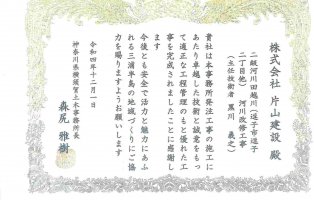 株式会社 片山建設 殿
二級河川田越川(逗子市逗子
二丁目他) 河川改修工事
(主任技術者 黒川 義之)
貴社は本事務所発注工事の施工に
あたり卓越した技術と誠意をもっ
て適正な工程管理のもと優れた工
事を完成されましたことに感謝し
ます
今後とも安全で活力と魅力にあふ
れる三浦半島の地域づくりにご協
力を賜りますようお願いします
令和四年十二月一日
神奈川県横須賀土木事務所長
森尻 雅樹